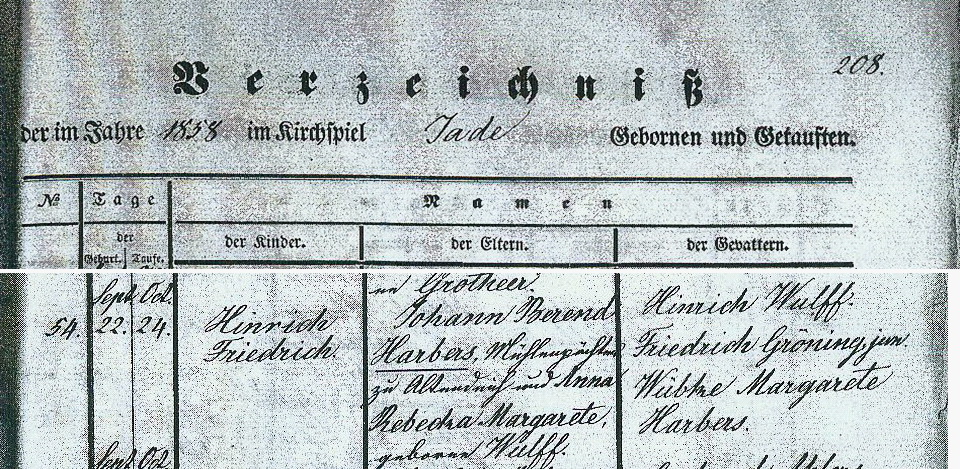 208.
Verzeichniß
der im Jahre 1858 im Kirchspiel Jade Gebornen und Getauften.
№ Tage Namen
der der Kinder. der Eltern. der Gevattern.
Geburt. Taufe.
Grotheer.
Sept. Oct. Johann Berend Hinrich Wulff.
54. 22. 24. Hinrich Harbers, Mühlenpächter Friedrich Gröning, jun.
Friedrich. zu Altendeich und Anna Wübke Margarete
Rebecka Margarete, Harbers.
geborne Wulff.
Sept. Oct.